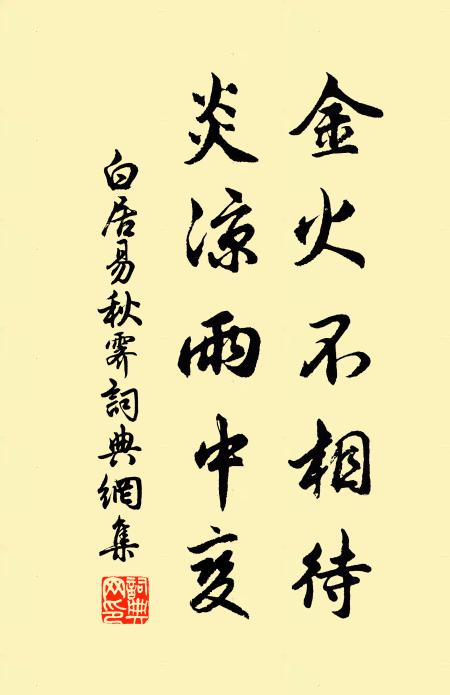 金火不相待
炎涼雨中变
白居易秋霽詞典網集
詞典
网印